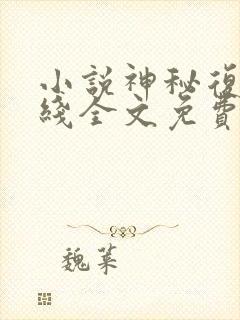 小說神秘復
綫全文免費
魏葉